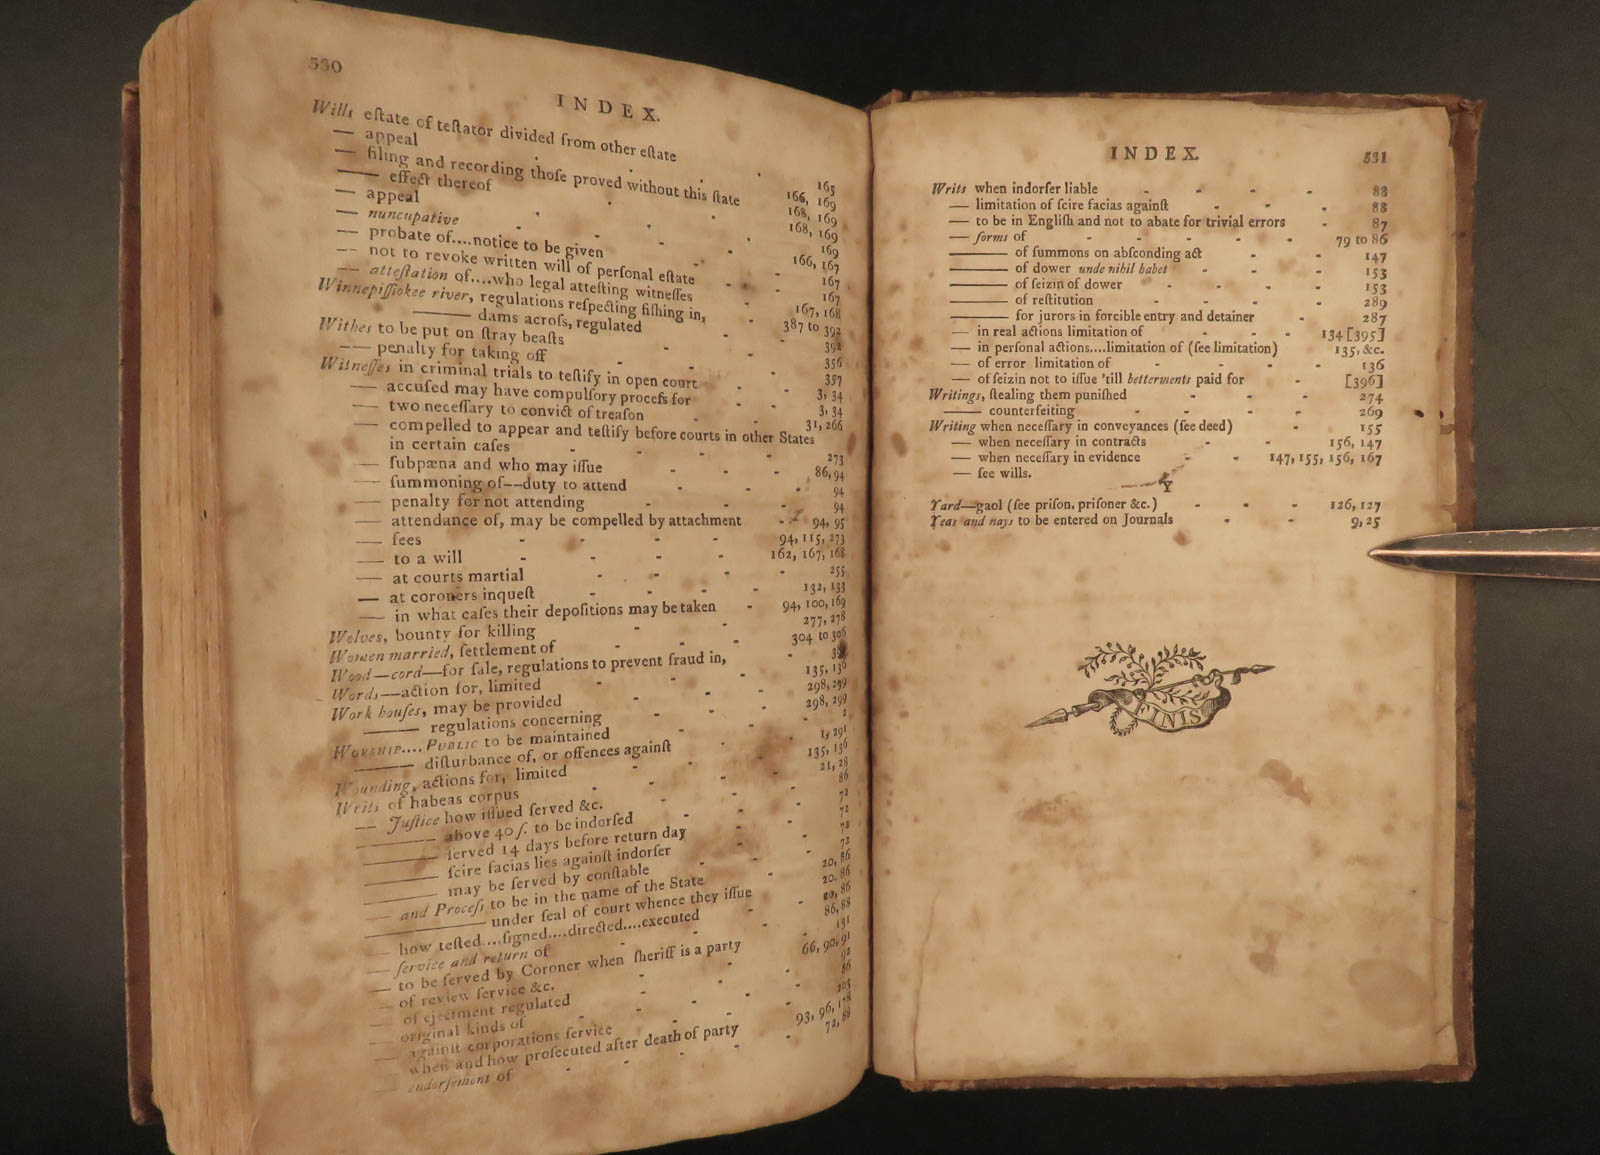 530
INDEX.
Wills eſtate of teſtator divided from other eſtate
— appeal - - - 165
— filing and recording thoſe proved without this ſtate 166, 169
—— effect thereof - - 168, 169
— appeal - - - 168, 169
— nuncupative - - - 169
— probate of....notice to be given - - 166, 167
— not to revoke written will of perſonal eſtate - 167
— atteſtation of....who legal atteſting witneſſes - 167
Winnepiſſiokee river, regulations reſpecting fiſhing in, 167, 168
——— dams acroſs, regulated - 387 to 392
Withes to be put on ſtray beaſts - - 392
—— penalty for taking off - - 356
Witneſſes in criminal trials to teſtify in open court - 357
— accuſed may have compulſory proceſs for - - 3, 34
— two neceſſary to convict of treaſon - - 3, 34
— compelled to appear and teſtify before courts in other States 31, 266
in certain caſes - - - -
— ſubpæna and who may iſſue - - - 273
— ſummoning of—duty to attend - - 86, 94
— penalty for not attending - - - 94
— attendance of, may be compelled by attachment - 94
— fees - - - - 94, 95
— to a will - - - - 94, 115, 273
— at courts martial - - - 162, 167, 168
— at coroners inqueſt - - - 255
— in what caſes their depoſitions may be taken - 132, 133
Wolves, bounty for killing - - 94, 100, 169
Women married, ſettlement of - - 277, 278
Wood—cord—for ſale, regulations to prevent fraud in, - 304 to 306
Words—action for, limited - - -
Work houſes, may be provided - - 135, 136
——— regulations concerning - - 298, 299
WORSHIP.... PUBLIC to be maintained - - 298, 299
——— diſturbance of, or offences againſt - 2
Wounding, actions for, limited - - 1, 291
Writs of habeas corpus - - 135, 136
—— Juſtice how iſſued ſerved &c. - - 21, 28
——— above 40ſ. to be indorſed - - 86
——— ſerved 14 days before return day - 72
——— ſcire facias lies againſt indorſer - 72
——— may be ſerved by conſtable - - 72
— and Proceſs to be in the name of the State - 72
——— under ſeal of court whence they iſſue - 20, 86
— how teſted....ſigned....directed....executed - 20, 86
— ſervice and return of - - 20, 86
— to be ſerved by Coroner when ſheriff is a party - 86, 88
— of review ſervice &c. - - 131
— of ejectment regulated - - 66, 90, 91
— original kinds of - - 92
— againſt corporations ſervice - - 86
— when and how proſecuted after death of party - 93, 96, 178
— endorſement of - - - 72, 88
INDEX. 531
Writs when indorſer liable - - - - 88
— limitation of ſcire facias againſt - - - 88
— to be in Engliſh and not to abate for trivial errors - 87
— forms of - - - - - 79 to 86
——— of ſummons on abſconding act - - 147
——— of dower unde nihil habet - - - 153
——— of ſeizin of dower - - - 153
——— of reſtitution - - - - 289
——— for jurors in forcible entry and detainer - 287
— in real actions limitation of - - - 134 [395]
— in perſonal actions....limitation of (ſee limitation) 135, &c.
— of error limitation of - - - - 136
— of ſeizin not to iſſue 'till betterments paid for - [396]
Writings, ſtealing them puniſhed - - - 274
—— counterfeiting - - - - 269
Writing when neceſſary in conveyances (ſee deed) - 155
— when neceſſary in contracts - - 156, 147
— when neceſſary in evidence - - 147, 155, 156, 167
— ſee wills.
Y
Yard—gaol (ſee priſon, priſoner &c.) - - - 126, 127
Yeas and nays to be entered on Journals - - 9, 25
FINIS